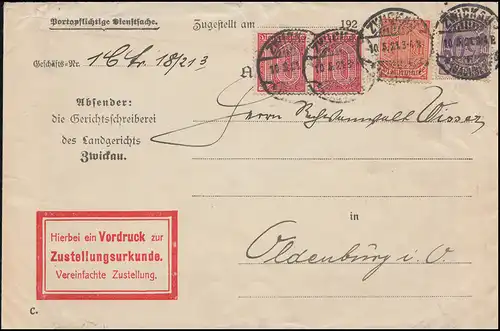 Portopflichtige Dienstsache.
Zugestellt am 192
Geschäfts-Nr. 1 C fr. 18/213
Absender:
die Gerichtsschreiberei
des Landgerichts
Zwickau.
ZWICKAU
10.5.21.
Herrn Rechtsanwalt Wisser
in
Oldenburg i. O.
Hierbei ein Vordruck zur
Zustellungsurkunde.
Vereinfachte Zustellung.
C.